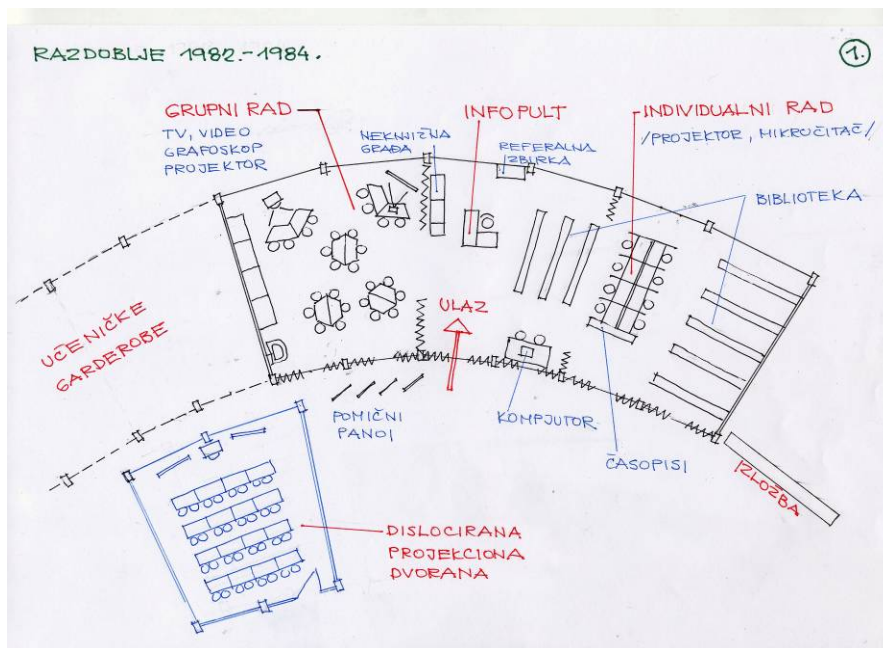 RAZDOBLJE 1982.-1984.
1.
GRUPNI RAD
TV, VIDEO
GRAFOSKOP
PROJEKTOR
NEKNJIŽNA
GRAĐA
INFOPULT
REFERALNA
ZBIRKA
INDIVIDUALNI RAD
/PROJEKTOR, MIKROČITAČ/
BIBLIOTEKA
UČENIČKE
GARDEROBE
ULAZ
POMIČNI
PANOI
KOMPJUTOR
ČASOPISI
IZLOŽBA
DISLOCIRANA
PROJEKCIONA
DVORANA